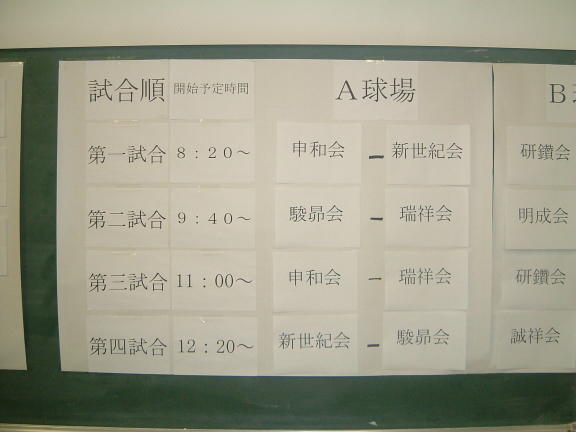 試合順 開始予定時間 A球場 B
第一試合 8:20～ 申和会 - 新世紀会 研鑽会
第二試合 9:40～ 駿昴会 - 瑞祥会 明成会
第三試合 11:00～ 申和会 - 瑞祥会 研鑽会
第四試合 12:20～ 新世紀会 - 駿昴会 誠祥会